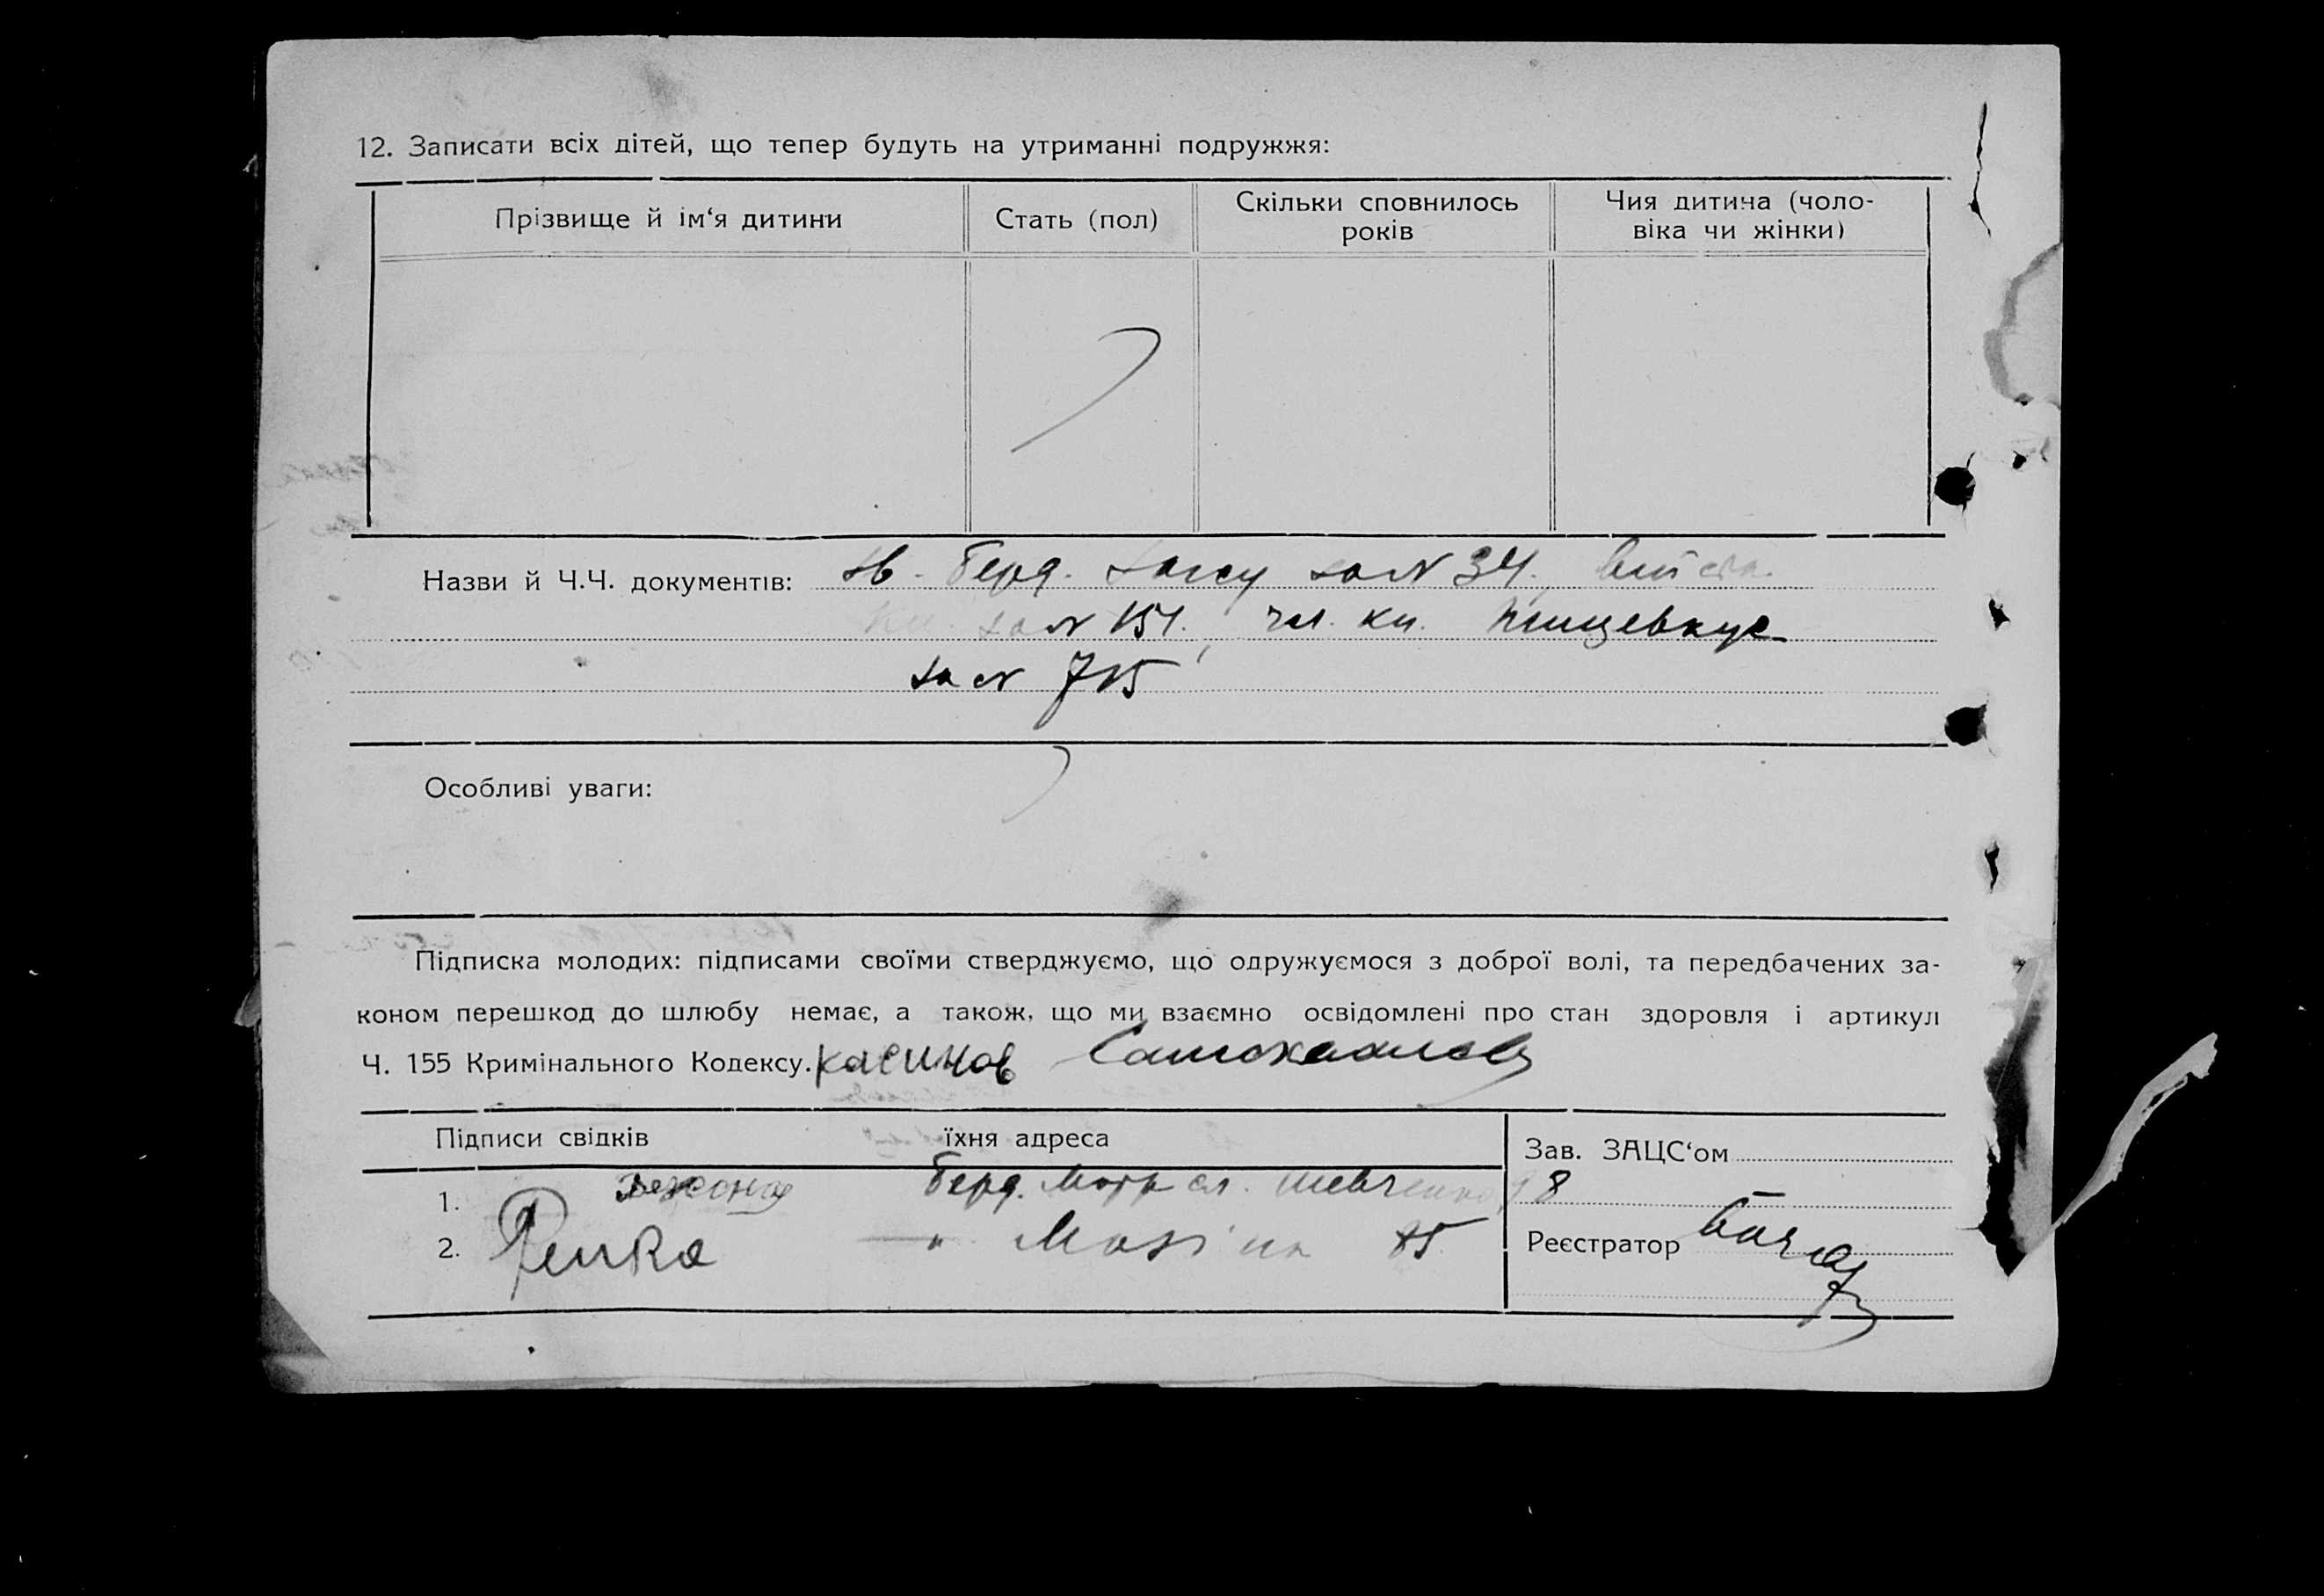 12. Записати всіх дітей, що тепер будуть на утриманні подружжя:
Прізвище й ім‘я дитини
Стать (пол)
Скільки сповнилось
років
Чия дитина (чоло-
віка чи жінки)
Назви й Ч.Ч. документів: Берд. за № 34.
за № 154. чл. кн.
за № 715
Особливі уваги:
Підписка молодих: підписами своїми стверджуємо, що одружуємося з доброї волі, та передбачених за-
коном перешкод до шлюбу немає, а також, що ми взаємно освідомлені про стан здоровля і артикул
Ч. 155 Кримінального Кодексу. Касинов
Підписи свідків їхня адреса
Зав. ЗАЦС‘ом
1. Берд. Шевченко 8
2. Репка " 85
Реєстратор